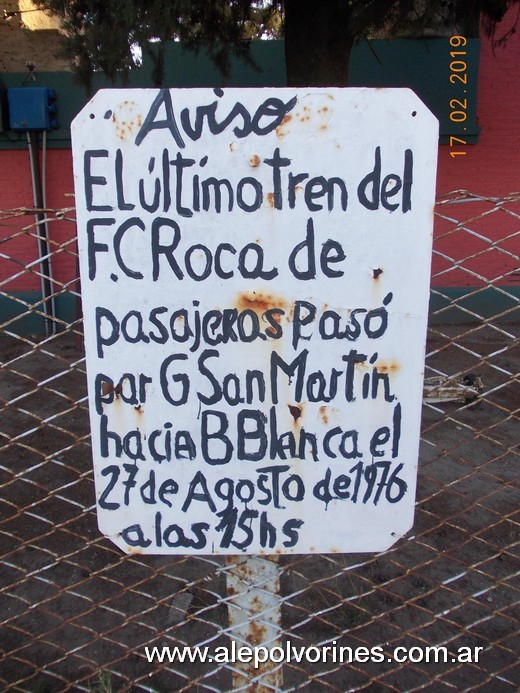 17.02.2019
Aviso
El último tren del
F.C Roca de
pasajeros Pasó
por G San Martín
hacia B Blanca el
27 de Agosto de 1976
a las 15 hs
www.alepolvorines.com.ar